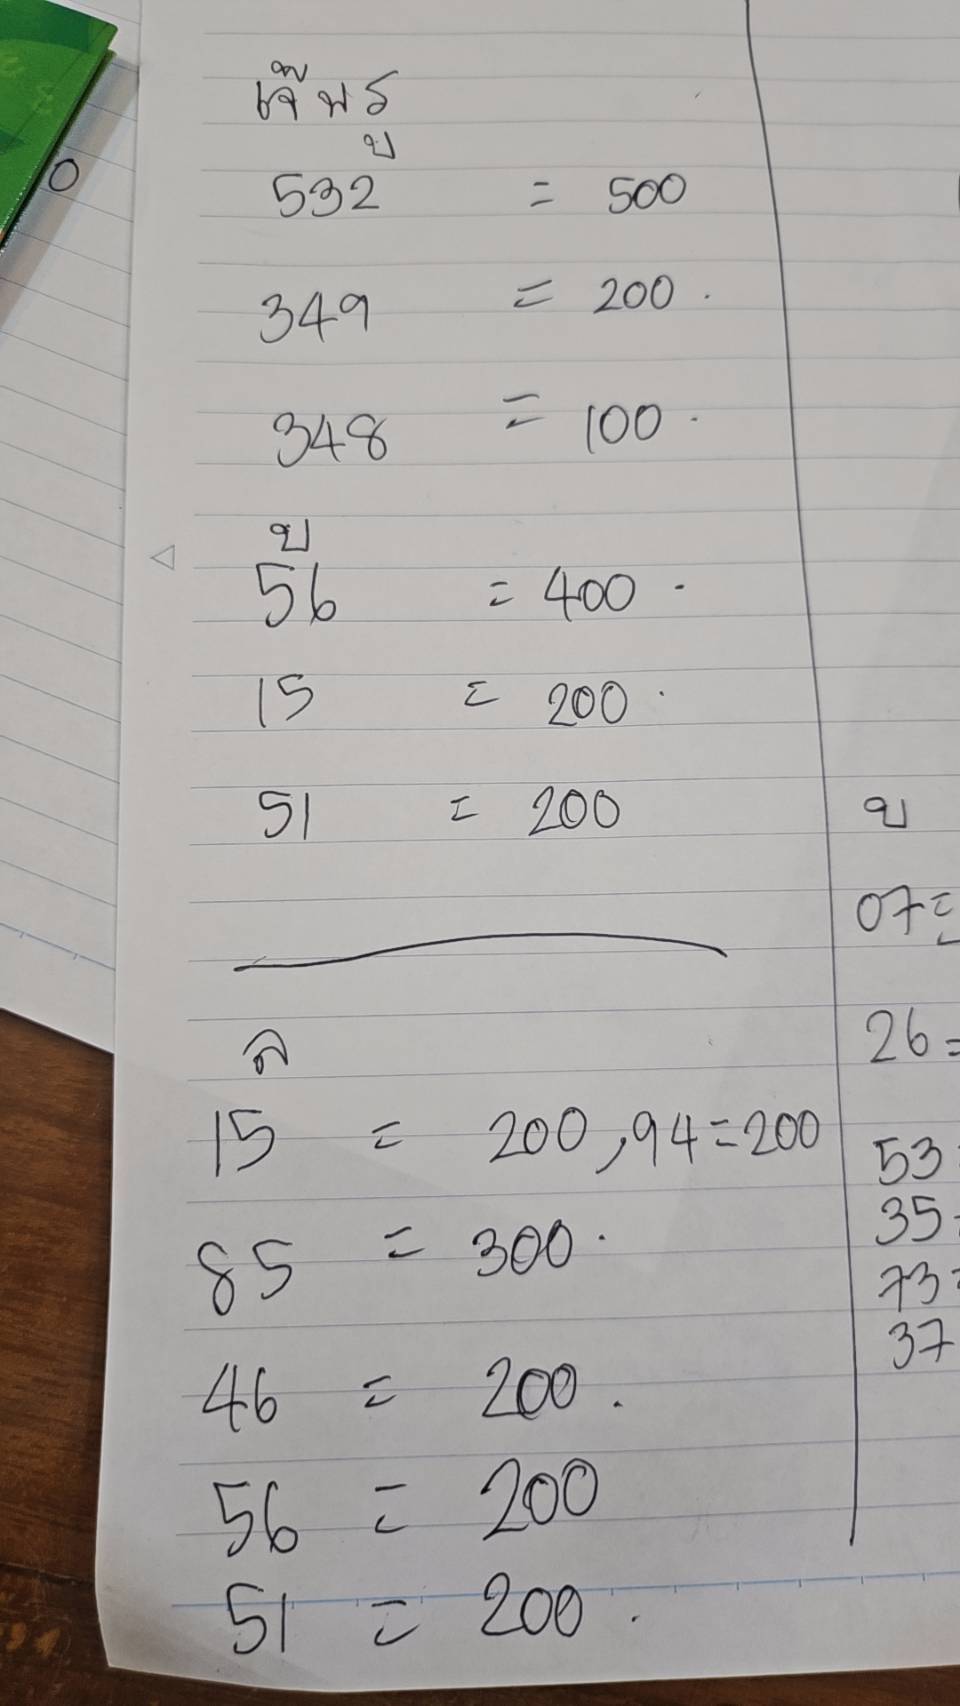 เจ๊พร
บ
532 = 500
349 = 200.
348 = 100.
บ
56 = 400.
15 = 200.
51 = 200
ล
15 = 200, 94 = 200
85 = 300.
46 = 200.
56 = 200
51 = 200.
บ
07 =
26 =
53
35
73
37